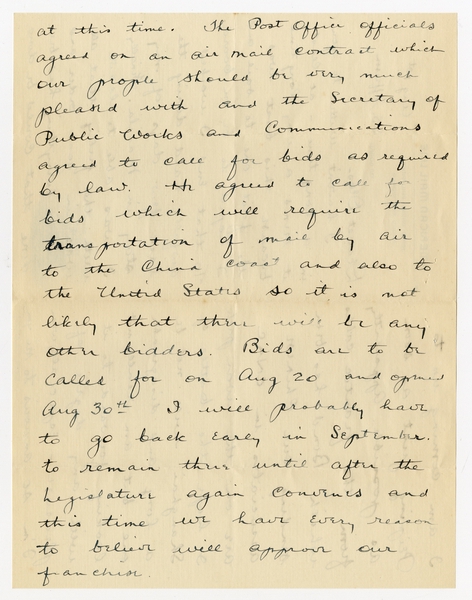 at this time. The Post Office officials
agreed on an air mail contract which
our people should be very much
pleased with and the Secretary of
Public Works and Communications
agreed to call for bids as required
by law. He agreed to call for
bids which will require the
transportation of mail by air
to the China coast and also to
the United States so it is not
likely that there will be any
other bidders. Bids are to be
called for on Aug 20 and opened
Aug 30th I will probably have
to go back early in September.
to remain there until after the
Legislature again convenes and
this time we have every reason
to believe will approve our
franchise.